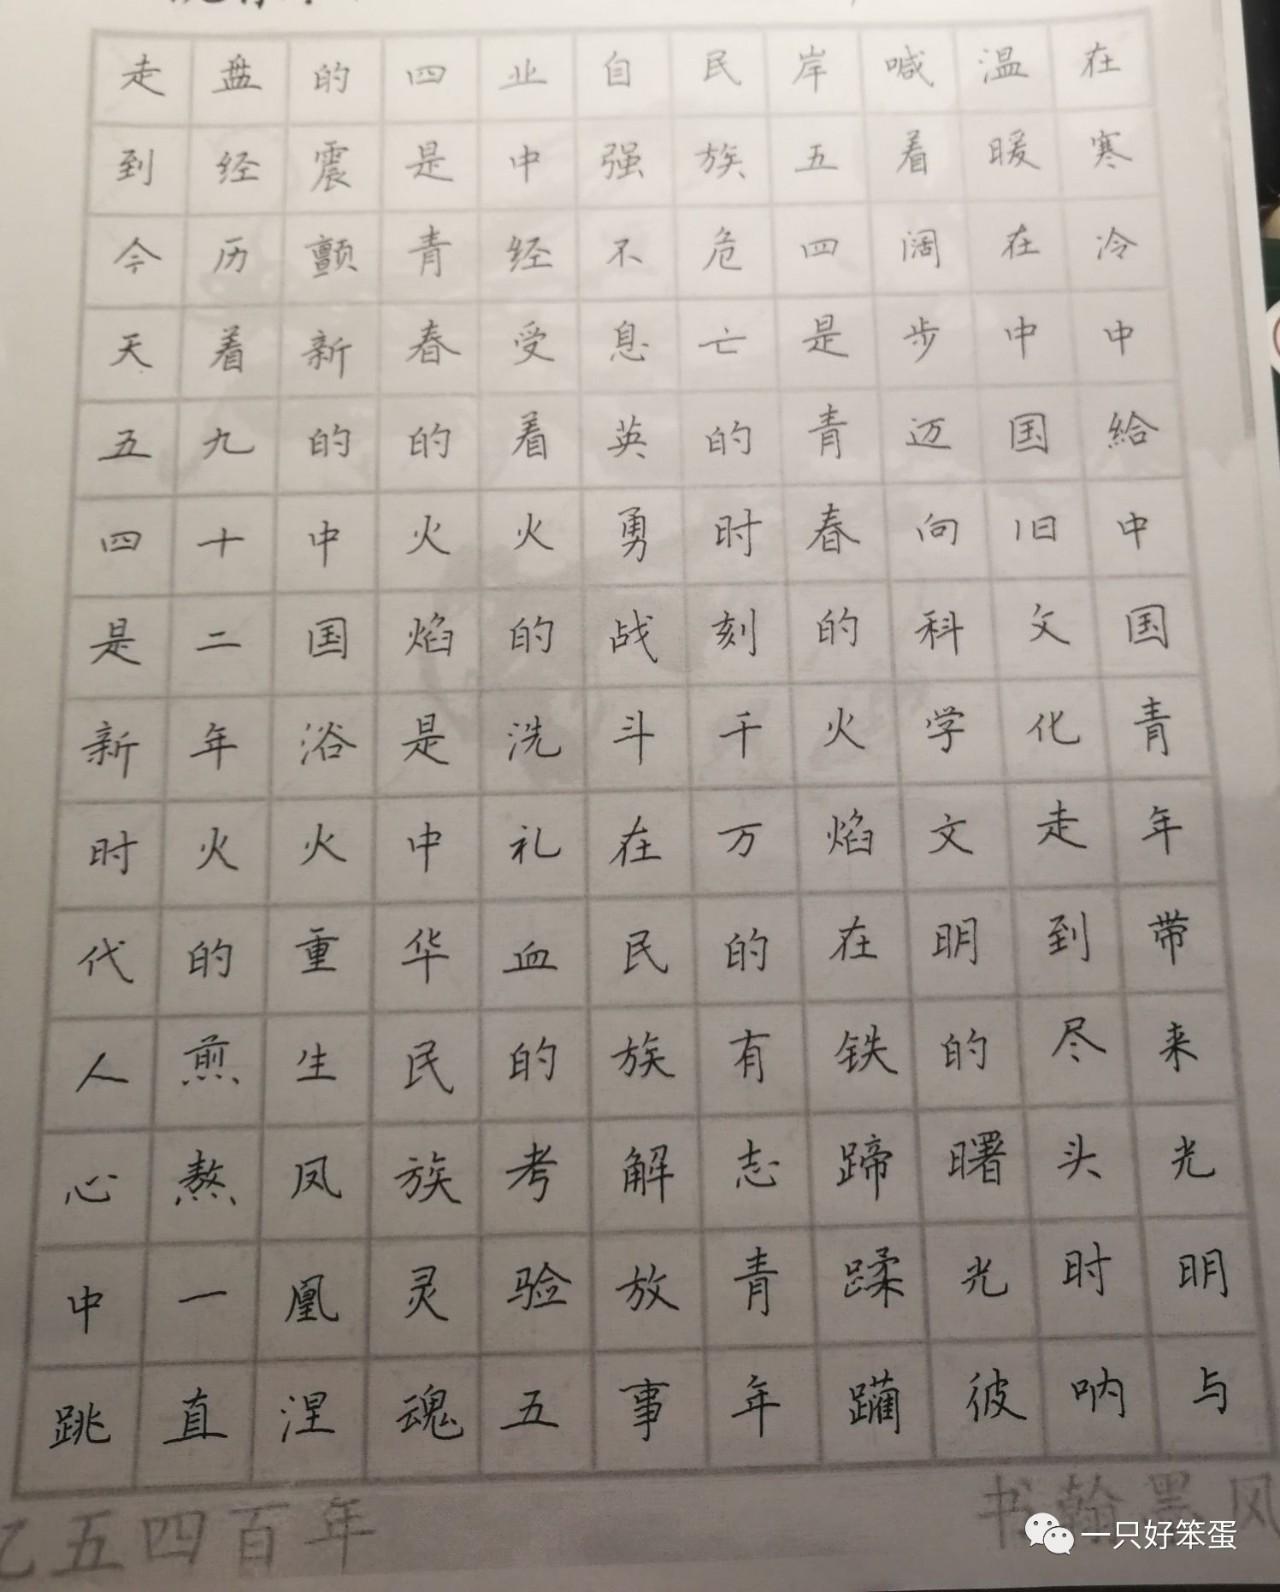 在寒冷中給中国青年带来光明与
温暖在中国旧文化走到尽头时呐
喊着阔步迈向科学文明的曙光彼
岸五四是青春的火焰在铁蹄蹂躏
民族危亡的时刻千万的有志青年
自强不息英勇战斗在民族解放事
业中经受着火的洗礼血的考验五
四是青春的火焰是中华民族灵魂
的震颤新的中国浴火重生凤凰涅
盘经历着九十二年火的煎熬一直
走到今天五四是新时代人心中跳
忆五四百年
书翰墨风
一只好笨蛋